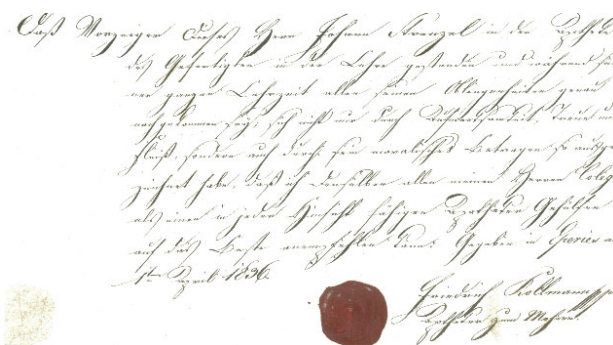 Daß Vorzeiger dieses Herr Johann Krenzel in der Apotheke
des Gefertigten in der Lehre gestanden und während sei
ner ganzen Lehrzeit allen seinen Obliegenheiten genau
nachgekommen sey, sich nicht nur durch Treue und
Fleiß, sondern auch durch sein moralisches Betragen so ausge
zeichnet habe, daß ich denselben allen meinen Herren Colleg
als einen in jeder Hinsicht fähigen Apotheker Gehülfen
auf das Beste anempfehlen kann. Gegeben in
1ten April 1836.
Friedrich Kollmann
Apotheker zum Mohren.